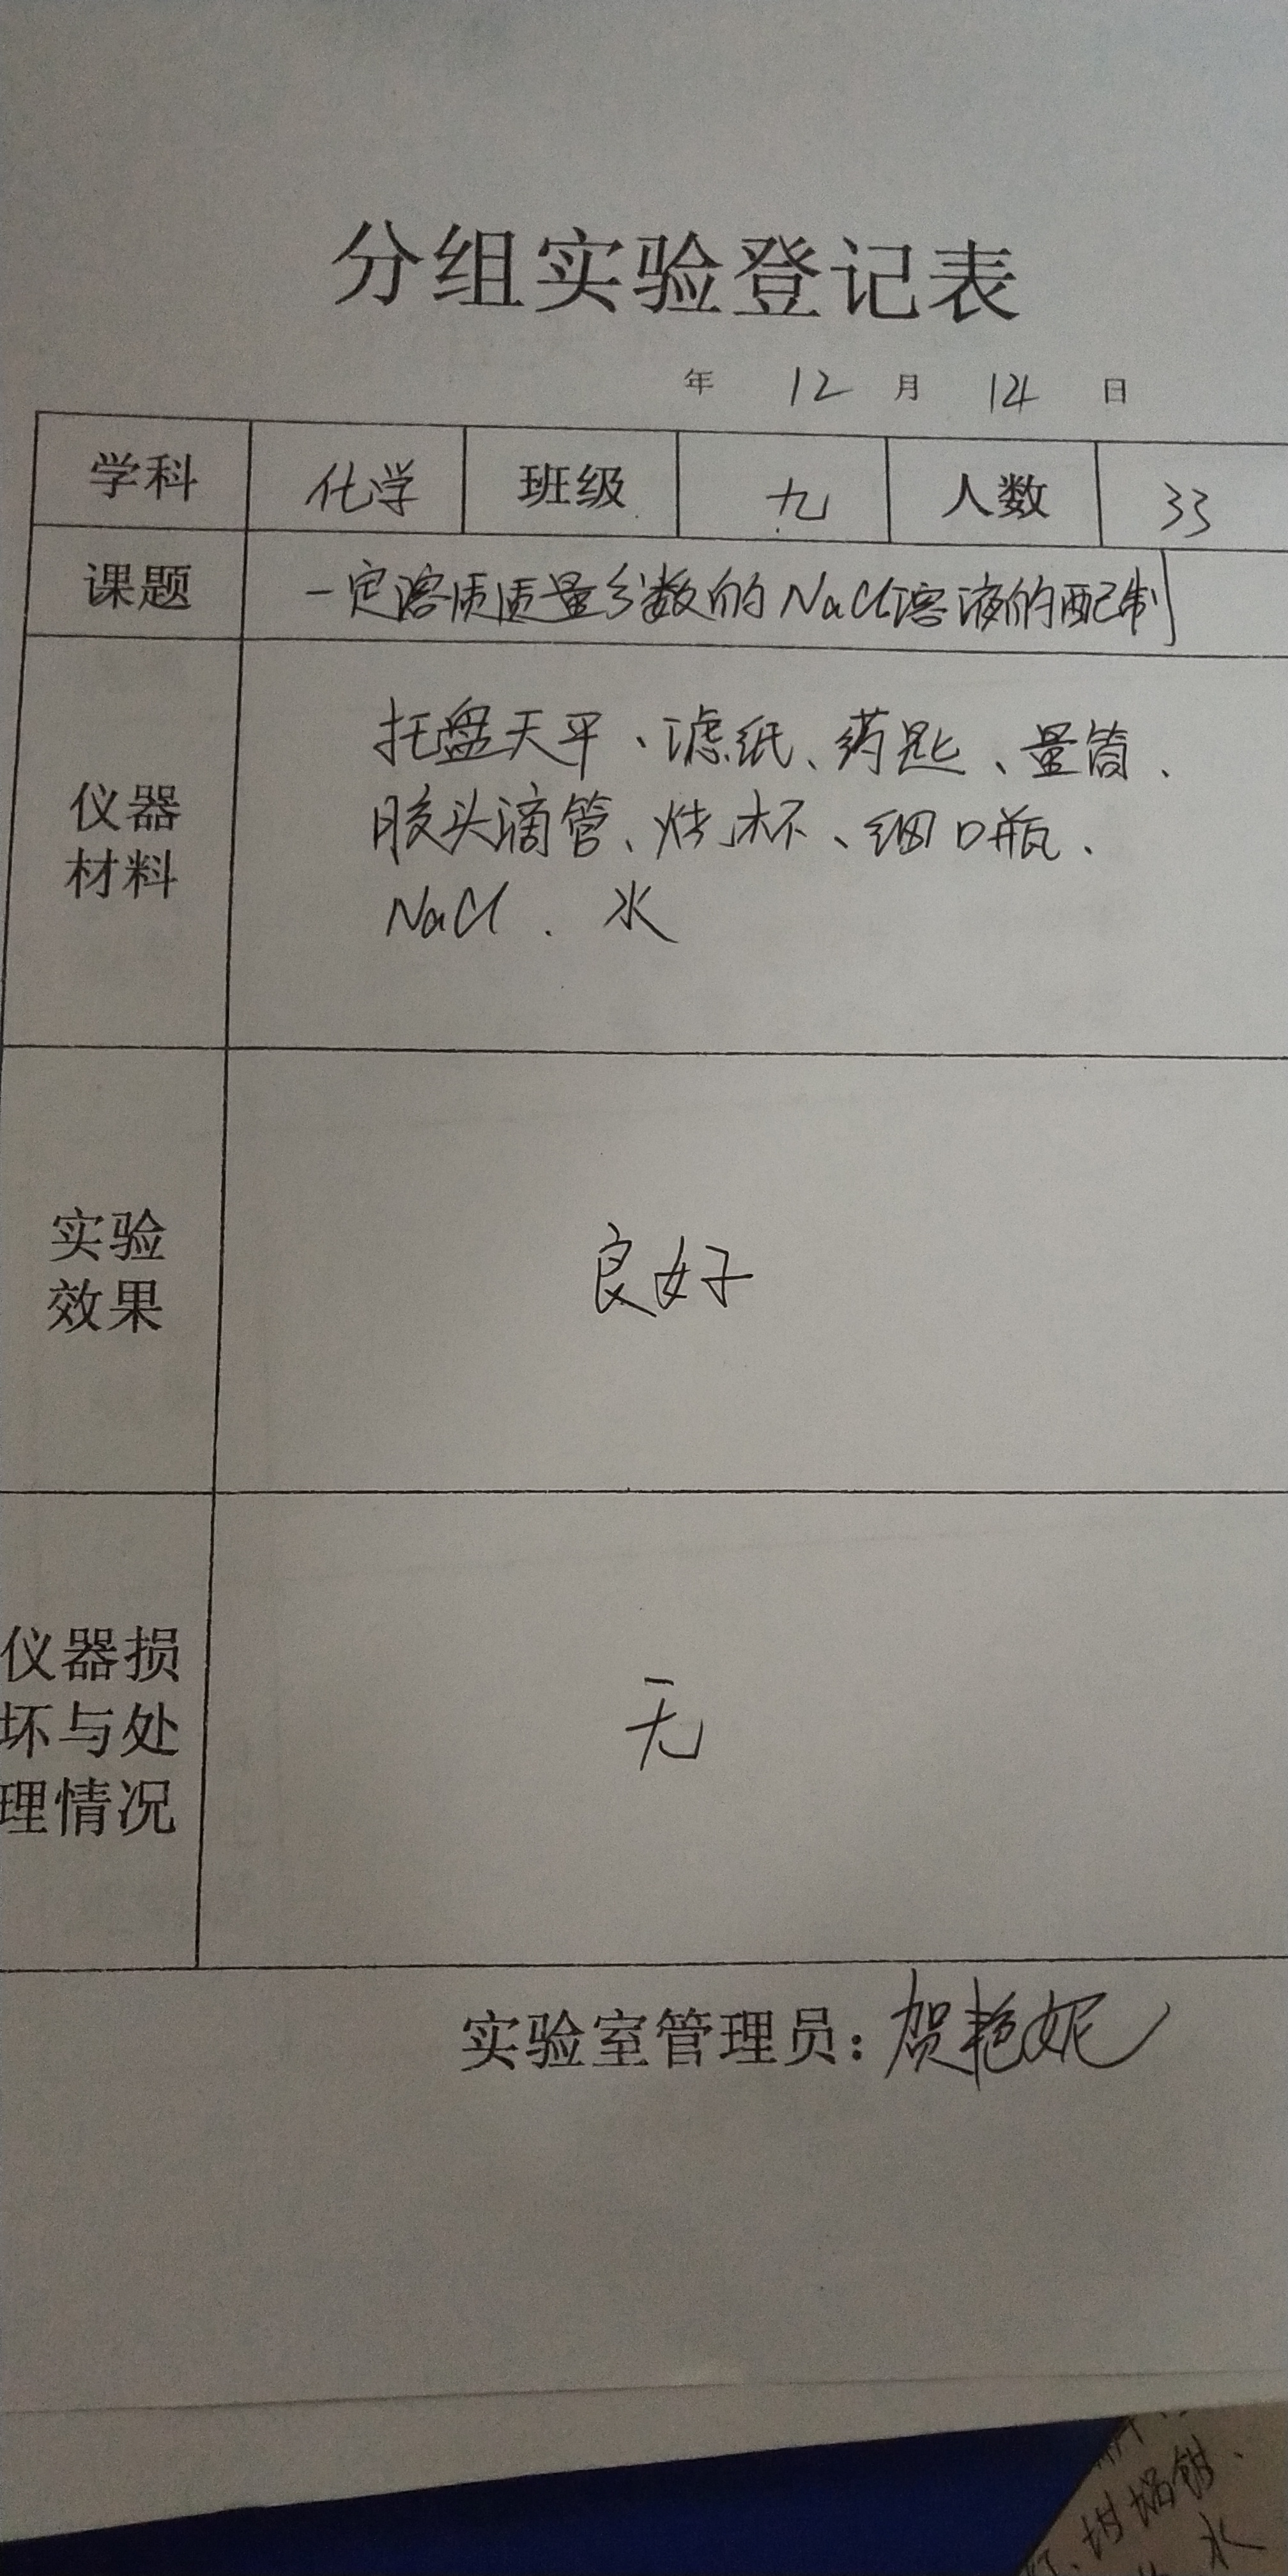 分组实验登记表
年 12 月 14 日
学科 化学 班级 九 人数 33
课题 一定溶质质量分数的NaCl溶液的配制
仪器材料
托盘天平、滤纸、药匙、量筒、
胶头滴管、烧杯、细口瓶、
NaCl、水
实验效果
良好
仪器损坏与处理情况
无
实验室管理员：贺艳妮
坩埚钳、
水